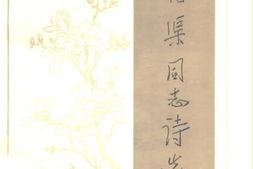 渠同志诗